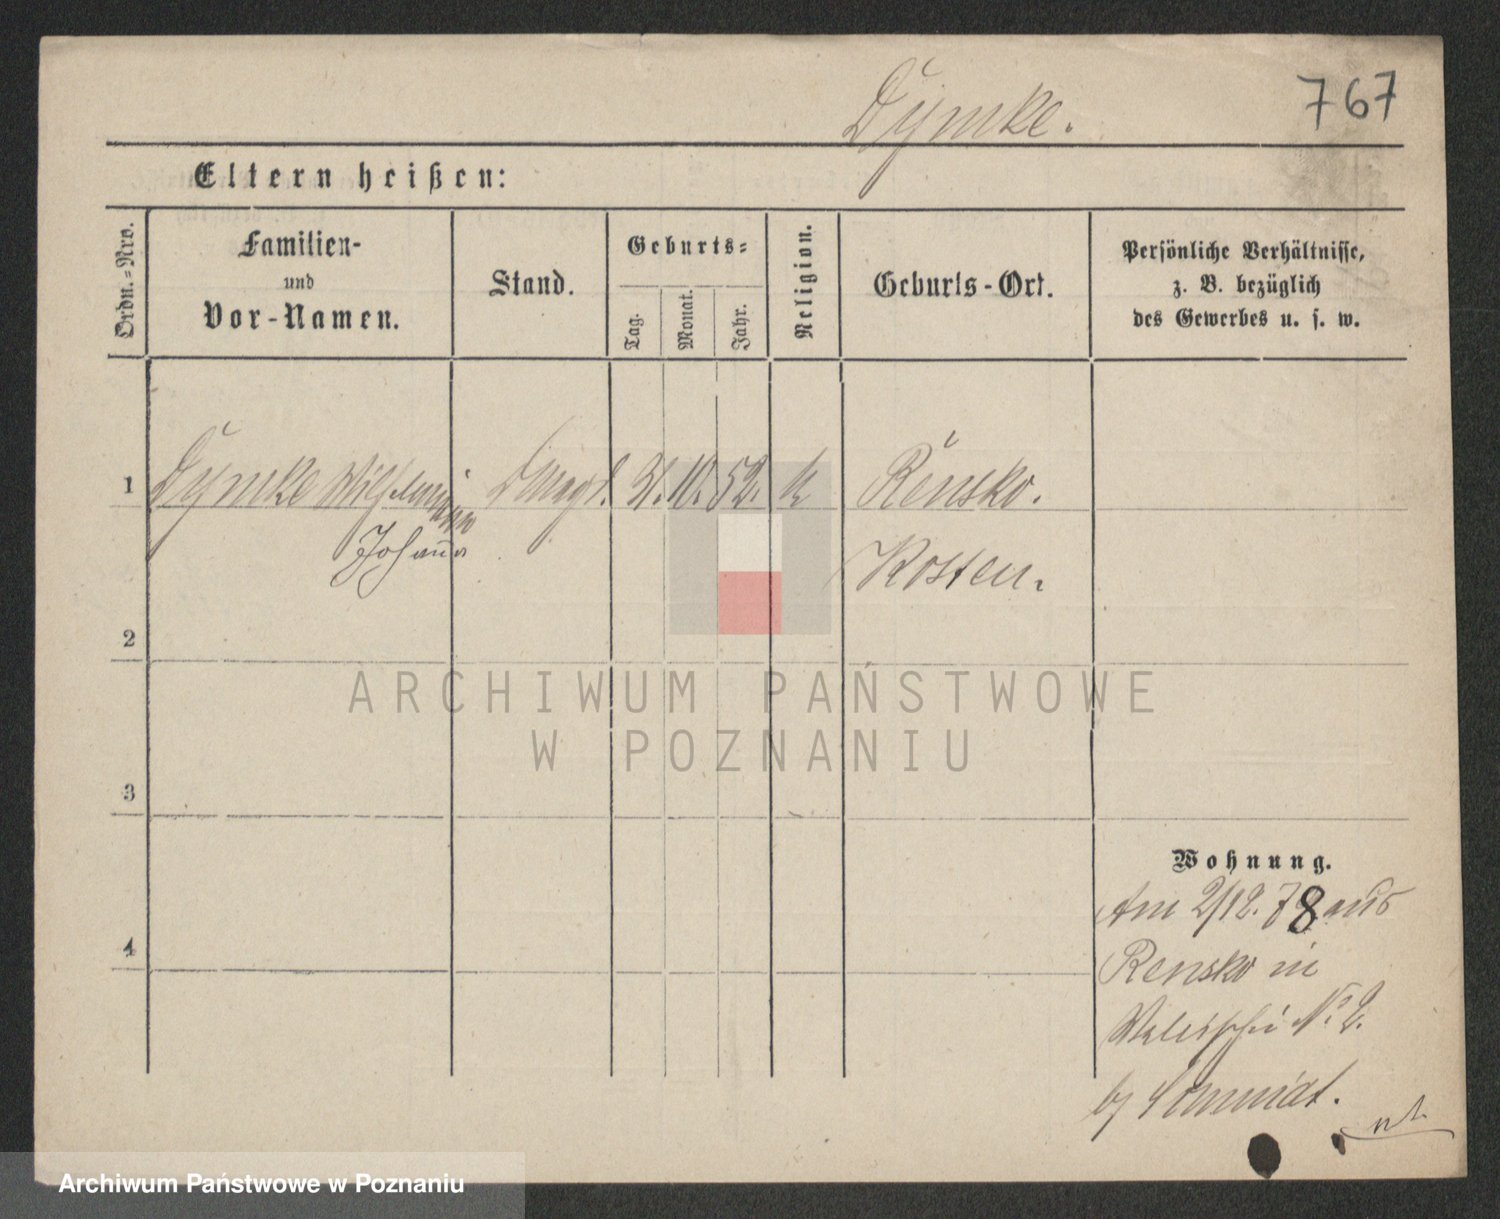 Dymke.
767
Eltern heißen:
Ordn.=Nro.
Familien-
und
Vor-Namen.
Stand.
Geburts=
Tag.
Monat.
Jahr.
Religion.
Geburts-Ort.
Persönliche Verhältnisse,
z. B. bezüglich
des Gewerbes u. s. w.
1 Dymke Wilhelmine 31. 10. 52. k Rensko.
Johanna
Kosten.
2
ARCHIWUM PAŃSTWOWE
W POZNANIU
3
Wohnung.
Am 2/12. 78 aus
4
Rensko in
Walischei No 2.
by Schmidt.
Archiwum Państwowe w Poznaniu